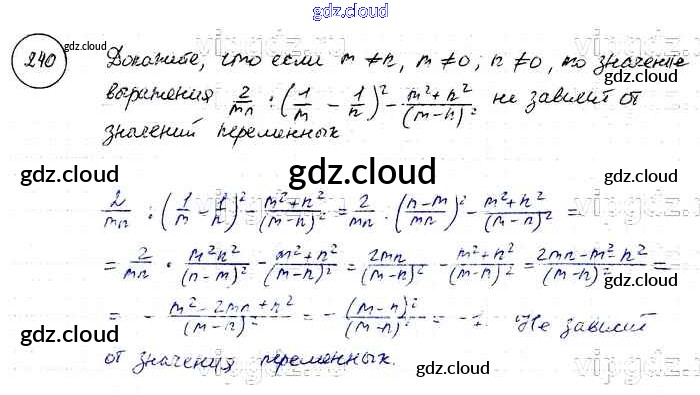 gdz.cloud
240 gdz.cloud Докажите, что если m ≠ n, m ≠ 0, n ≠ 0, то значение
выражения 2/mn : (1/m - 1/n)² - (m²+n²)/(m-n)² не зависит от
значений переменных
gdz.cloud gdz.cloud gdz.cloud
2/mn : (1/m - 1/n)² - (m²+n²)/(m-n)² = 2/mn : ((n-m)/mn)² - (m²+n²)/(m-n)² =
= 2/mn · m²n²/(n-m)² - (m²+n²)/(m-n)² = 2mn/(m-n)² - (m²+n²)/(m-n)² = (2mn-m²-n²)/(m-n)² =
= - (m²-2mn+n²)/(m-n)² = - (m-n)²/(m-n)² = -1. Не зависит
gdz.cloud gdz.cloud
от значения переменных.
gdz.cloud